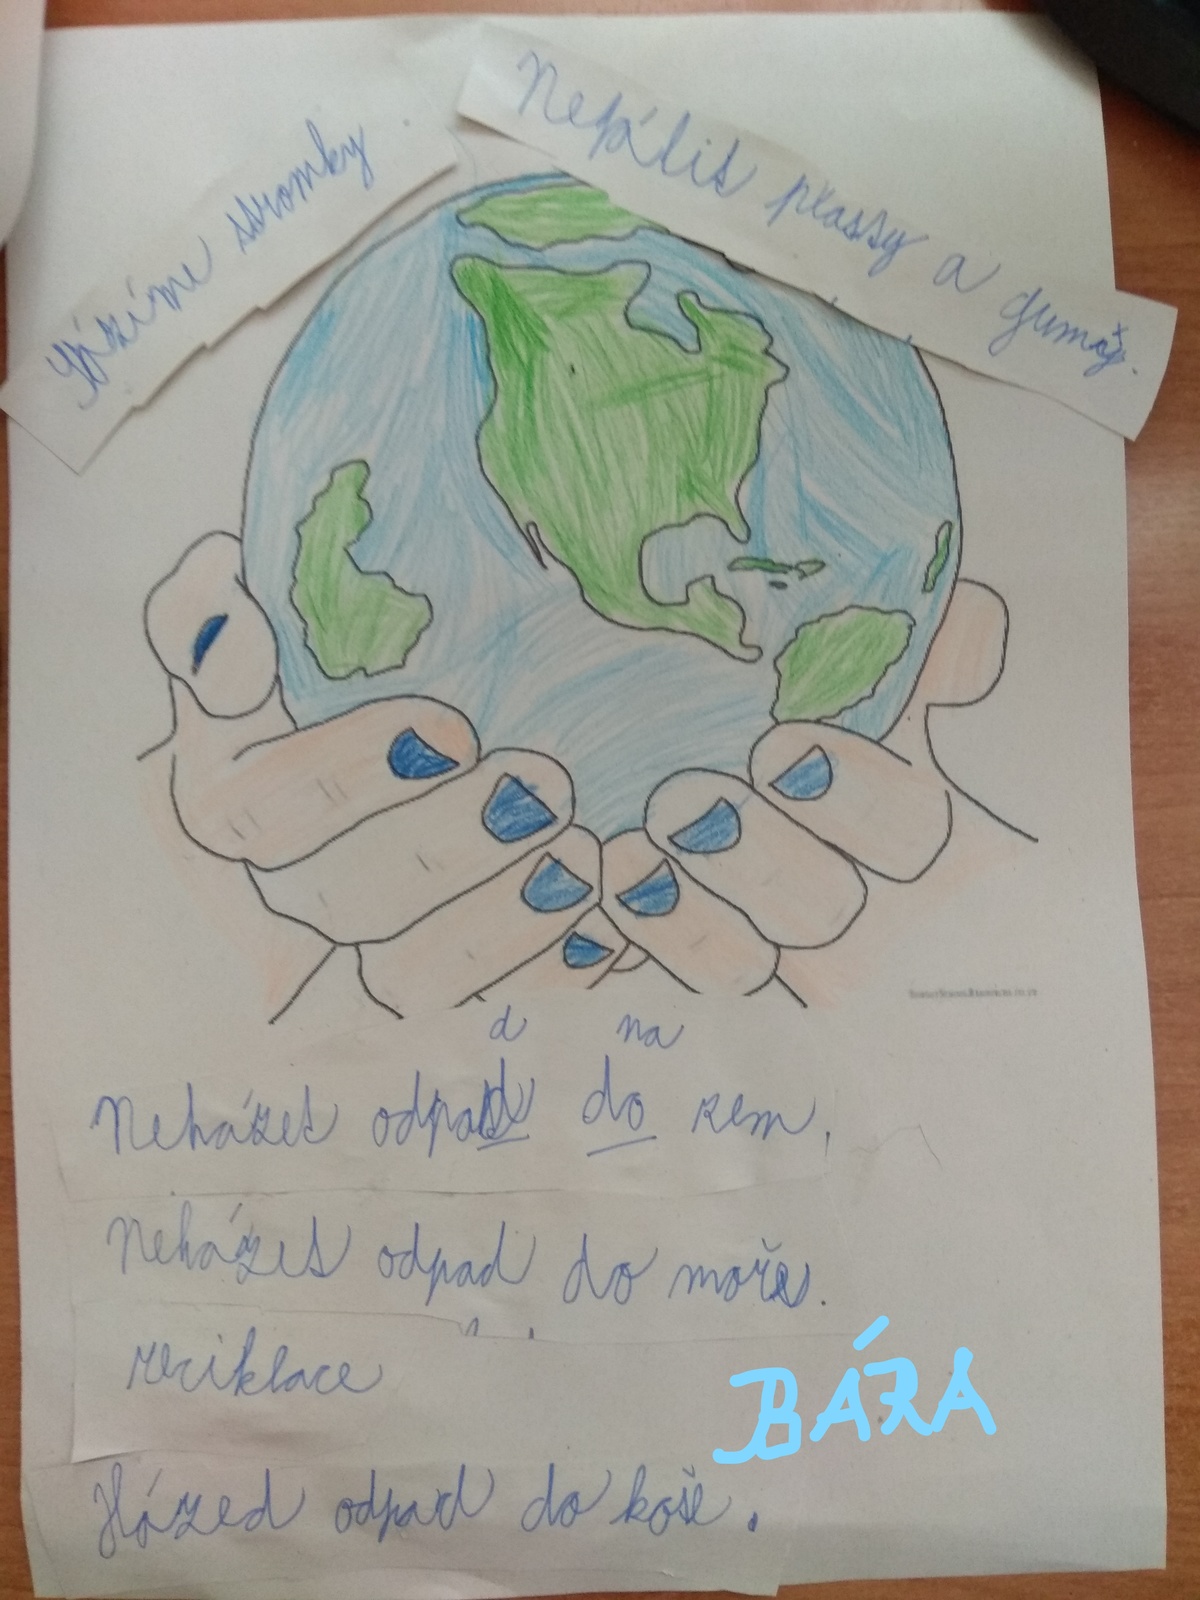 Sázíme stromky
Nepálit plasty a gumy.
d na
Neházet odpad do zem,
Neházet odpad do moře.
reciklace
BÁRA
Házed odpad do koše.